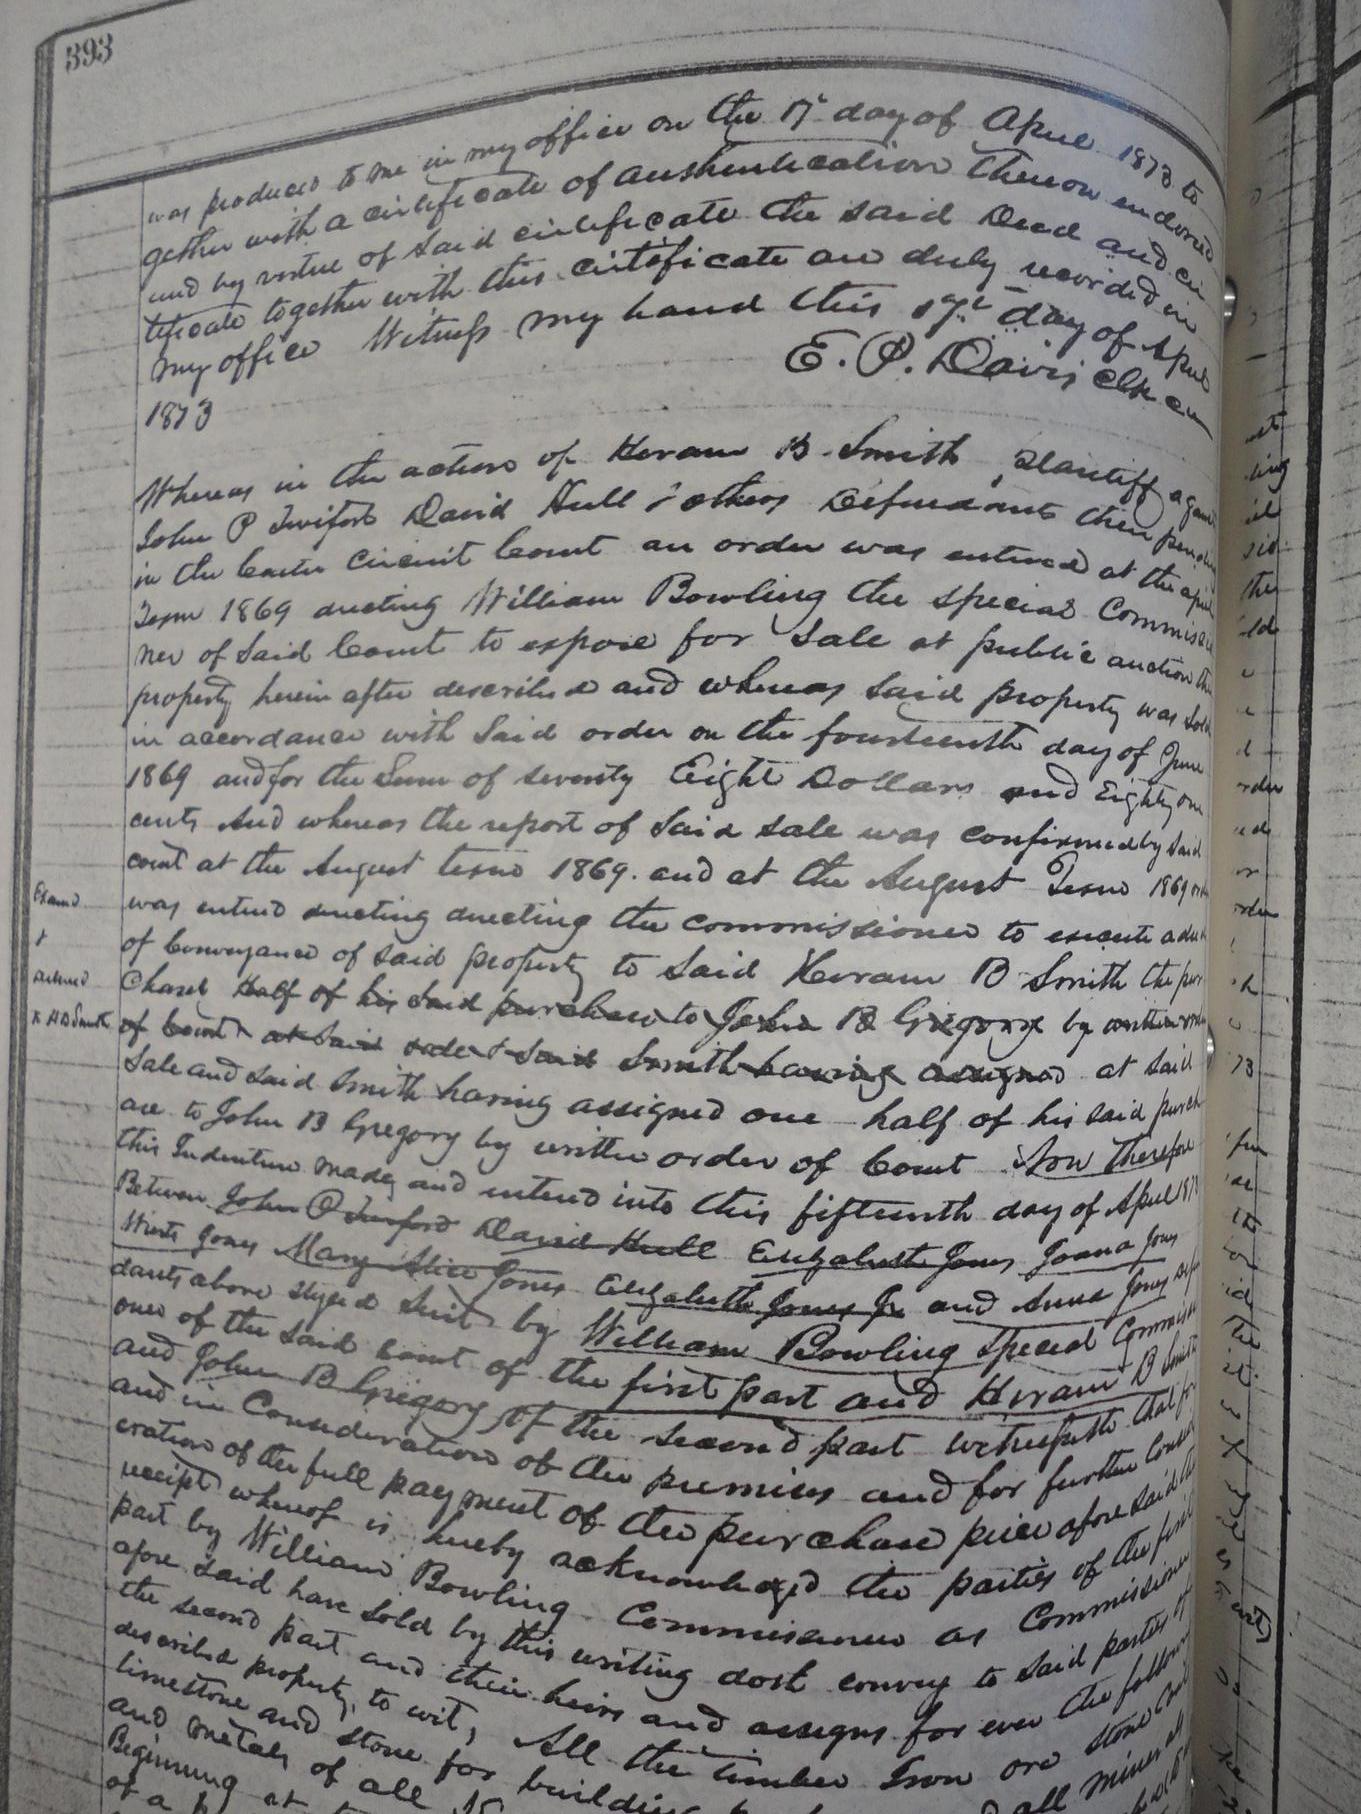 393
was produced to me in my office on the 17 day of April 1873 to
gether with a certificate of authentication thereon endorsed
and by virtue of said certificate the said Deed and cer
tificate together with this certificate are duly recorded in
my office Witness my hand this 17 day of April
1873
E. P. Davis Clk
Whereas in the action of Hiram B. Smith Plaintiff against
John P David Hull & others Defendants then pending
in the Carter Circuit Court an order was entered at the april
Term 1869 directing William Bowling the special Commissio
ner of said Court to expose for sale at public auction the
property herein after described and whereas said property was sold
in accordance with said order on the fourteenth day of June
1869 and for the Sum of seventy Eight Dollars and Eighty one
cents And whereas the report of said sale was confirmed by said
court at the August term 1869. and at the August Term 1869 order
was entered directing directing the commissioner to execute a deed
of Conveyance of said property to said Hiram B Smith the pur
Chaser Half of his said purchase to B Gregory by written order
of Court at said order & said Smith having assigned at said
Sale and said Smith having assigned one half of his said purch
ase to John B Gregory by written order of Court Now Therefore
this Indenture made and entered into this fifteenth day of April 187
Between John P David Hull Elizabeth Jones Jones
Jones Mary Alice Jones Elizabeth Jones Jr and Anna Jones defen
dants above styled Suit by William Bowling special Commissi
oner of the said court of the first part and Hiram B Smith
and John B Gregory of the second part witnesseth that for
and in Consideration of the premises and for further Consid
eration of the full payment of the purchase price afore said the
receipt whereof is hereby acknowledged the parties of the first
part by William Bowling Commissioner as Commissioner
afore said have sold by this writing doth convey to said parties of
the second part and their heirs and assigns for ever the following
described property, to wit, All the timber Iron ore stone Coal
limestone and stone for building all minerals
and metals of all
Beginning at
of a
Exam
&
delivered
to H B Smith